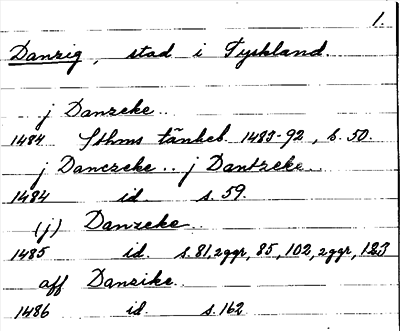 1.
Danzig, stad i Tyskland.
j Danzeke..
1484 Sthms tänkeb. 1483-92, s. 50.
j Danczeke.. j Dantzeke..
1484 id. s. 59.
(j) Danzeke..
1485 id. s. 81, 2 ggr, 85, 102, 2 ggr, 123
aff Danzike..
1486 id. s. 162